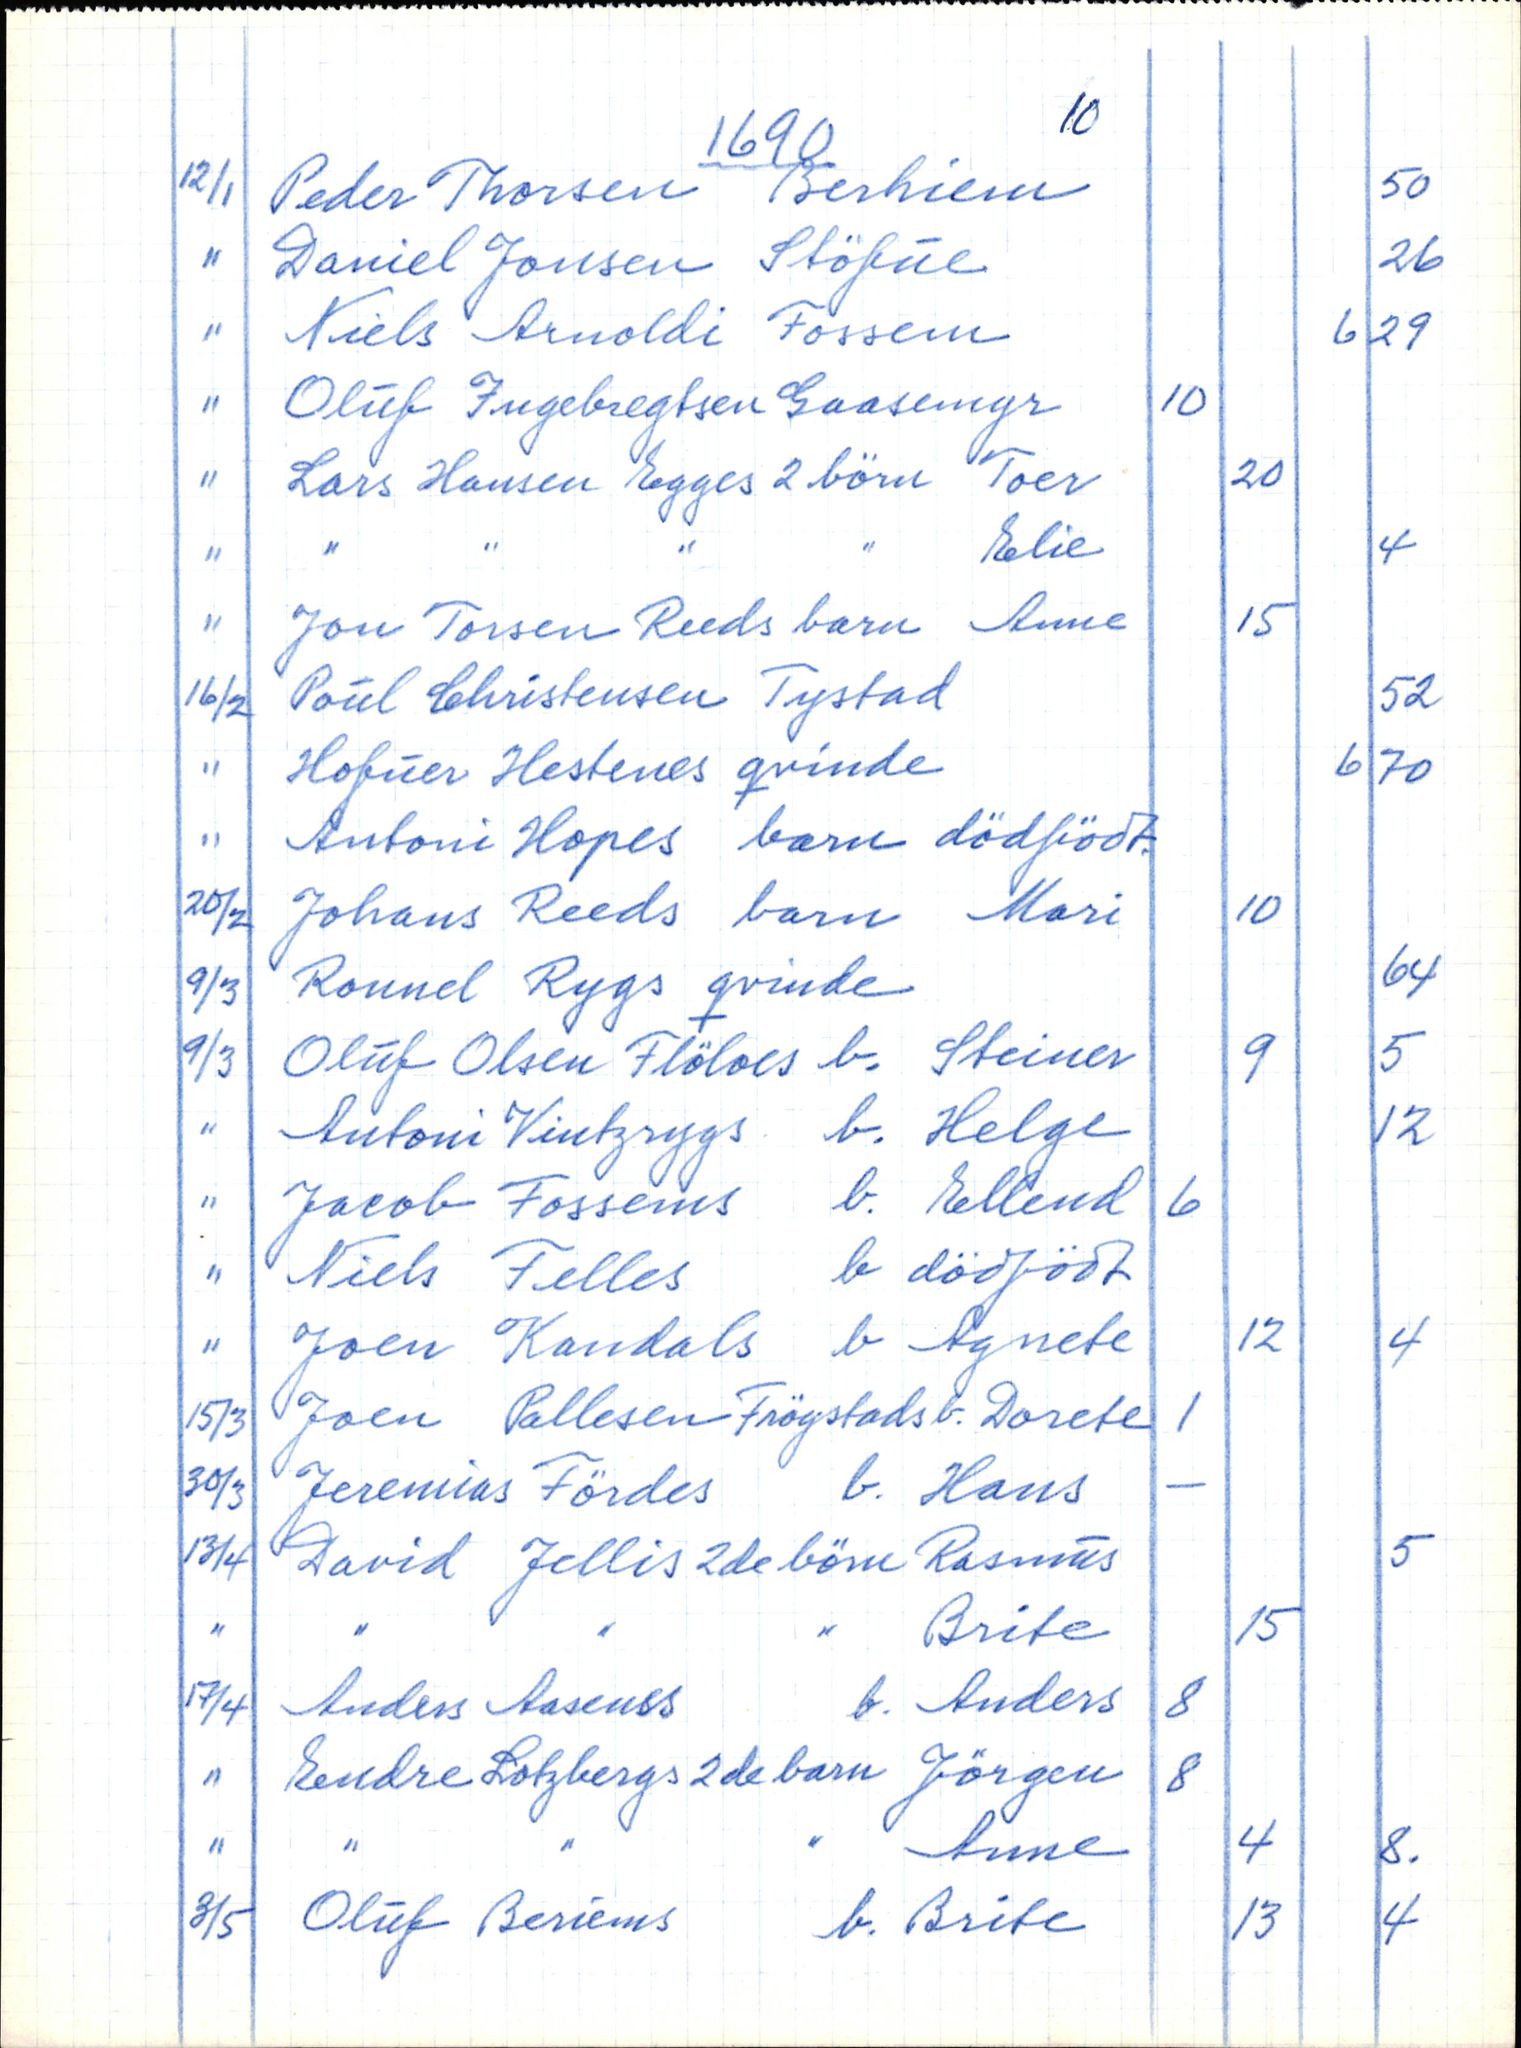 10
1690
12/1 Peder Thorsen Berhiem 50
" Daniel Jonsen Stöfne 26
" Niels Arnoldi Fossem 6 29
" Oluf Ingebregtsen Gaasemyr 10
" Lars Hansen Egges 2 börn Toer 20
" " " " " Elie 4
" Jon Torsen Reeds barn Anne 15
16/2 Poul Christensen Tystad 52
" Hestenes qvinde 6 70
" Antoni Hopes barn dödfödt.
20/2 Johans Reeds barn Mari 10
9/3 Ronnel Rygs qvinde 64
9/3 Oluf Olsen Flöloes b. Steiner 9 5
" Antoni Vintzrygs b. Helge 12
" Jacob Fossems b. Ellend 6
" Niels Felles b dödfödt
" Joen Kandals b Agnete 12 4
15/3 Joen Pallesen Frögstads b. Dorete 1
30/3 Jeremias Fördes b. Hans —
13/4 David Jellis 2de börn Rasmus 5
" " " " Brite 15
17/4 Anders Aaseness b. Anders 8
" Endre Lotzbergs 2de barn Jörgen 8
" " " " Anne 4 8.
3/5 Oluf Beriems b. Brite 13 4